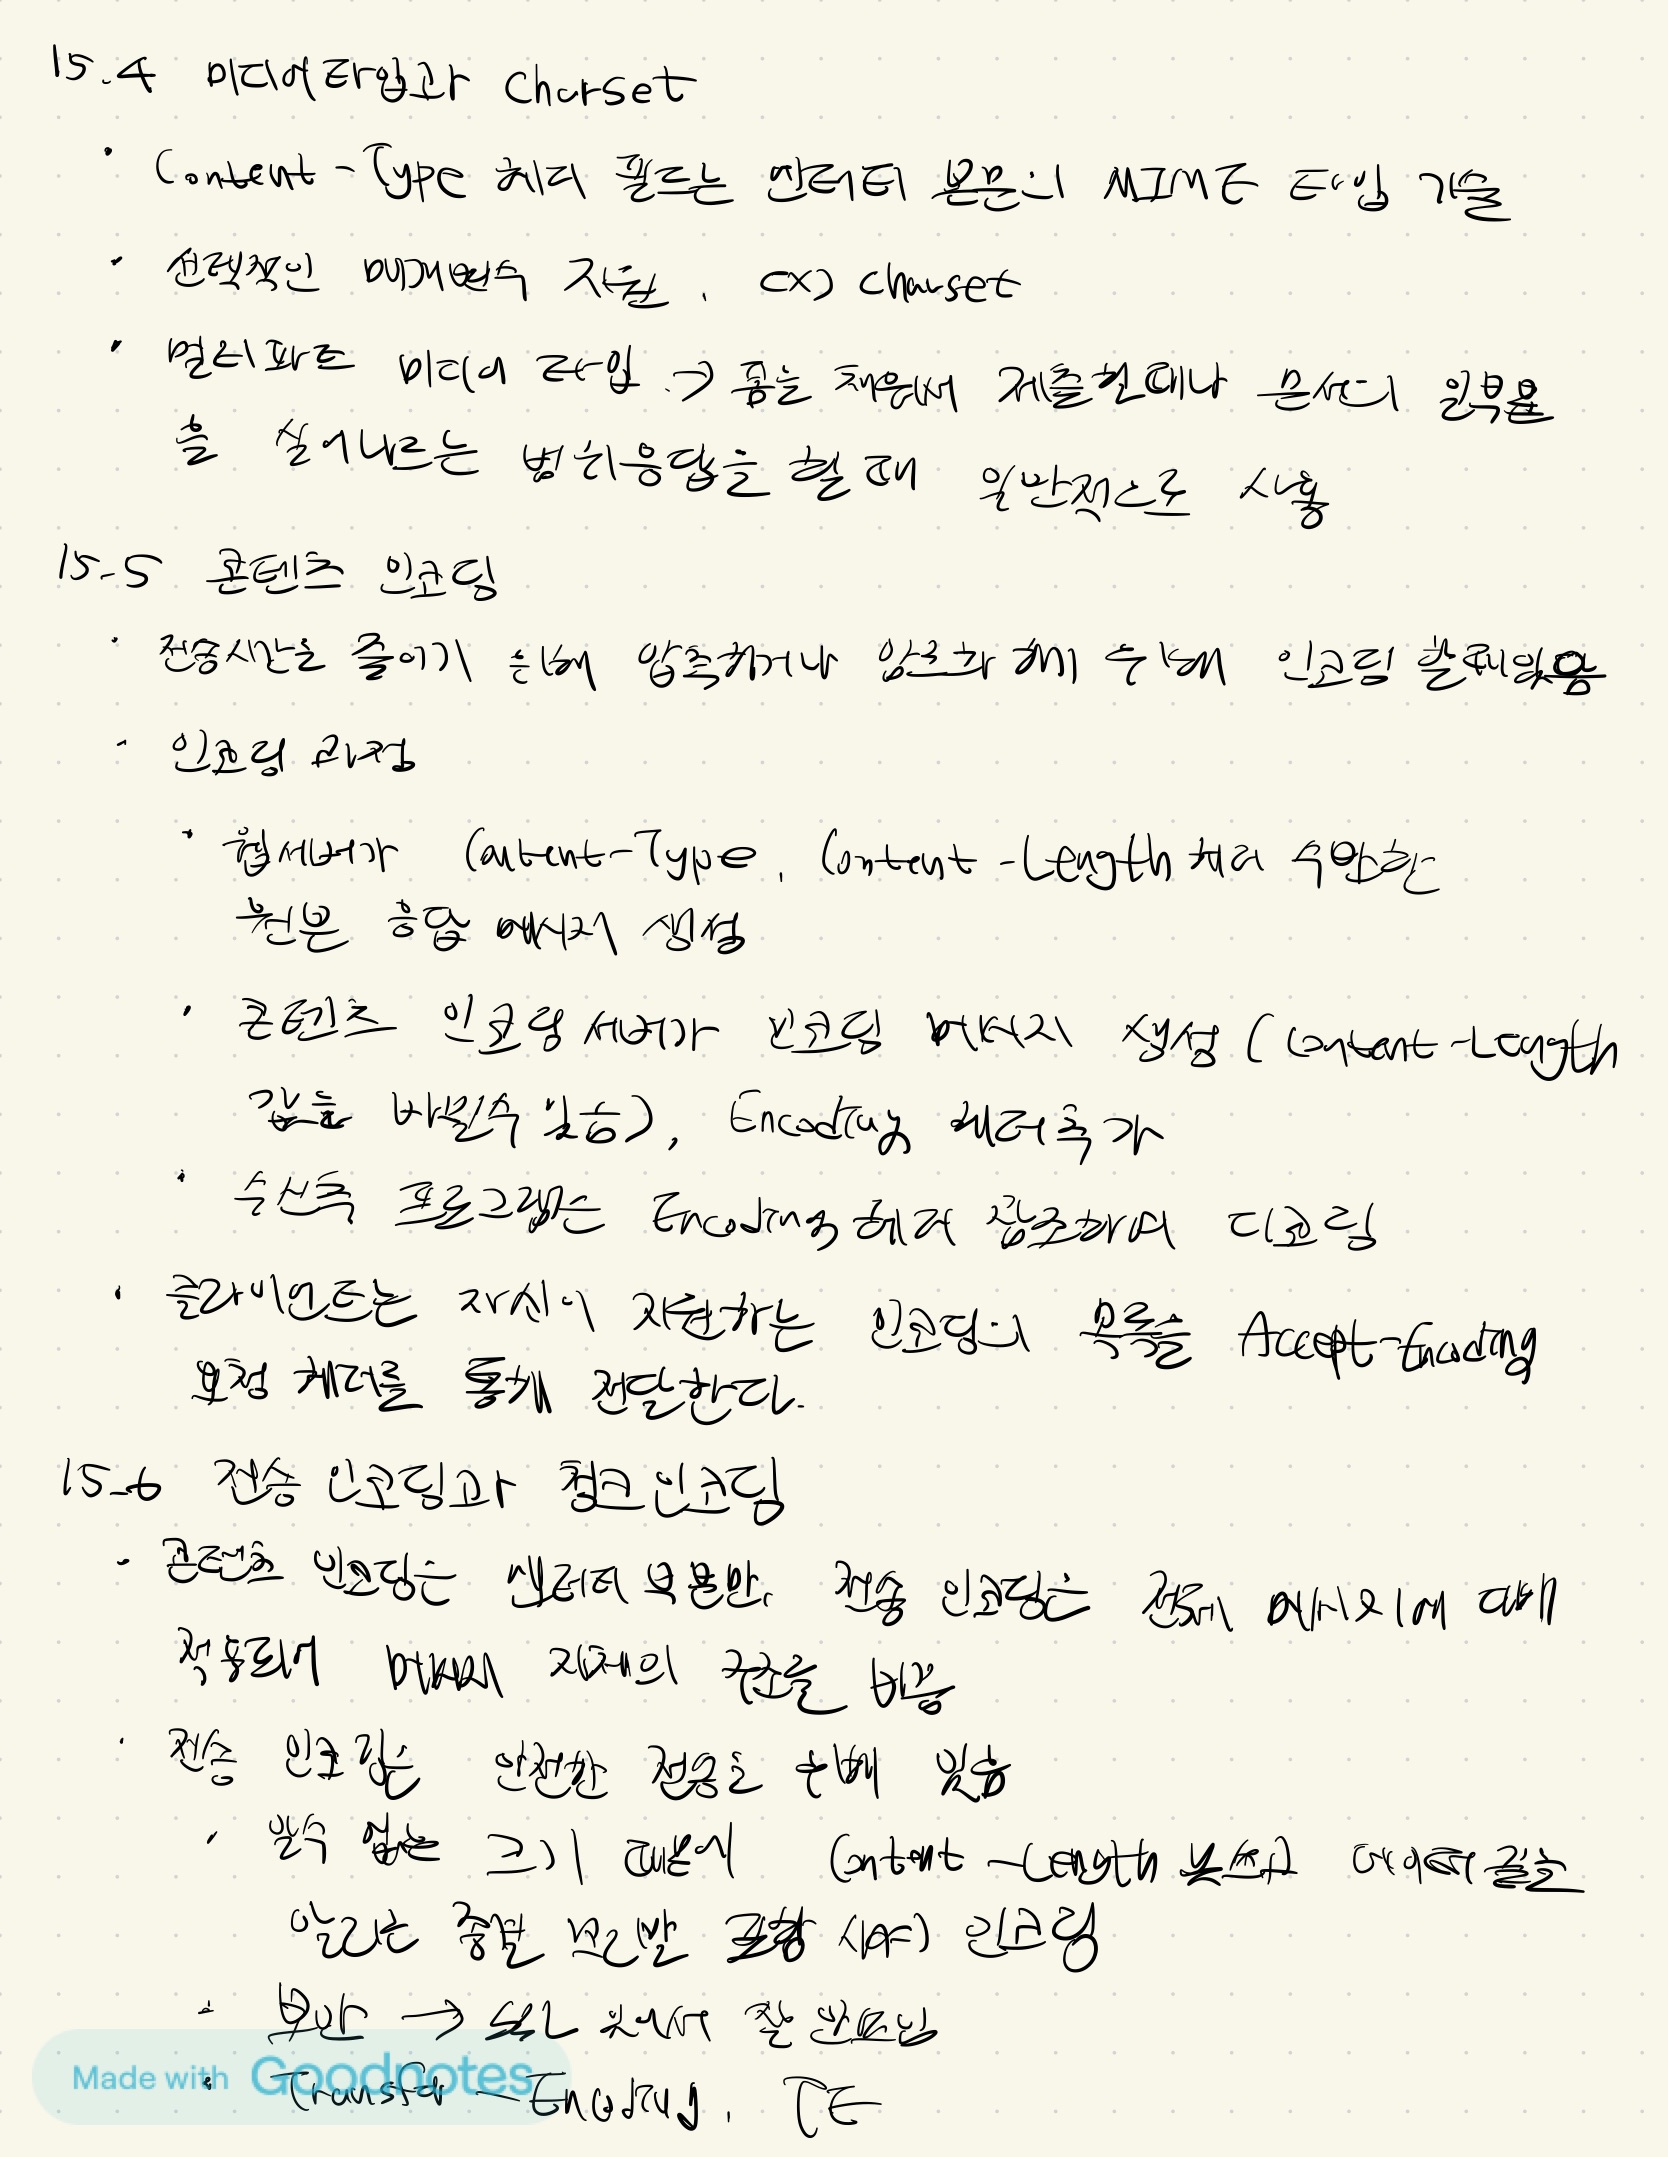 15.4 미디어 타입과 charset
· Content-Type 헤더 필드는 엔터티 본문의 MIME 타입 기술
· 선택적인 매개변수 지원, ex) charset
· 멀티파트 미디어 타입 → 폼을 채워서 제출할때나 문서의 일부분
을 실어나르는 범위응답을 할 때 일반적으로 사용
15-5 콘텐츠 인코딩
· 전송시간을 줄이기 위해 압축하거나 암호화 하기 위해 인코딩 할때있음
· 인코딩 과정
· 웹서버가 Content-Type, Content-Length 헤더 수반한
원본 응답 메시지 생성
· 콘텐츠 인코딩 서버가 인코딩 메시지 생성 (Content-Length
값은 바뀔수 있음), Encoding 헤더 추가
· 수신측 프로그램은 Encoding 헤더 참조하여 디코딩
· 클라이언트는 자신이 지원하는 인코딩의 목록을 Accept-Encoding
요청 헤더를 통해 전달한다.
15-6 전송 인코딩과 청크 인코딩
· 콘텐츠 인코딩은 엔터티 부분만, 전송 인코딩은 전체 메시지에 대해
적용되어 메시지 자체의 구조를 바꿈
· 전송 인코딩은 안전한 전송을 위해 있음
· 알수 없는 크기 때문에 Content-Length 못쓰고 데이터 끝을
알리는 종결 포함 시켜 인코딩
· 보안 → SSL 있어서 잘 안쓰임
· Transfer-Encoding, TE
Made with Goodnotes